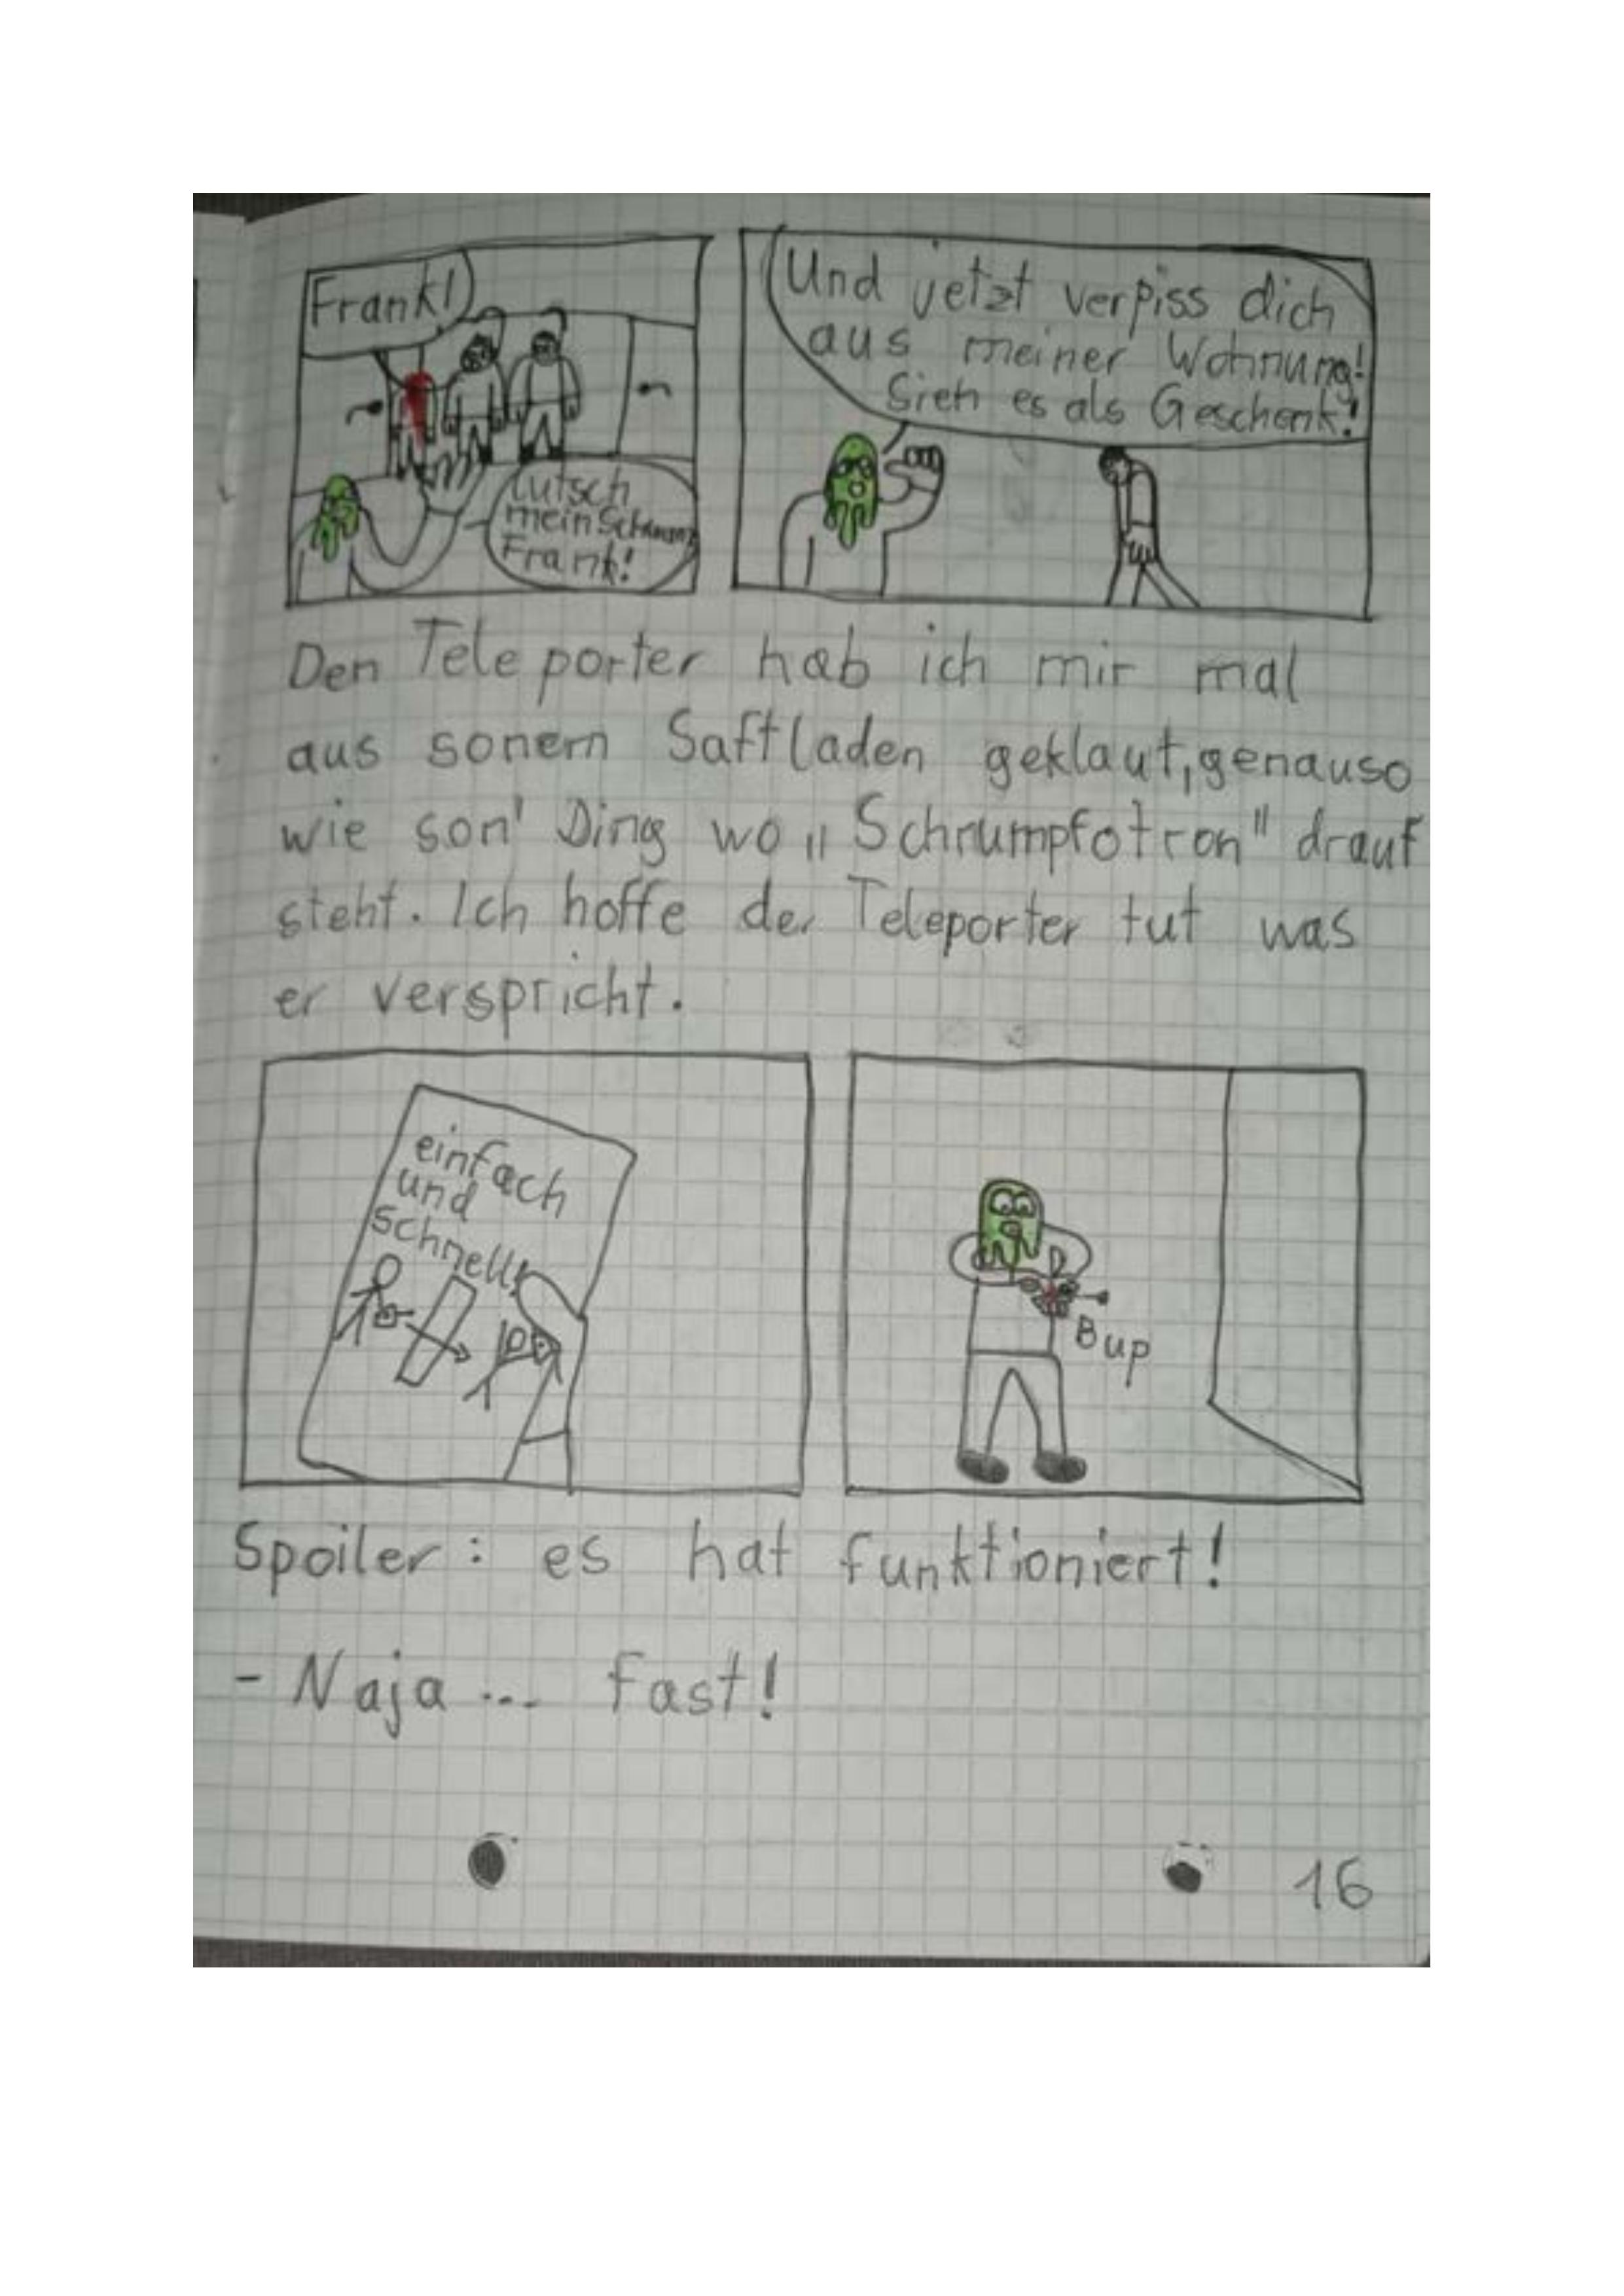 Frank!
Lutsch
mein Schwanz
Frank!
Und jetzt verpiss dich
aus meiner Wohnung!
Sieh es als Geschenk!
Den Teleporter hab ich mir mal
aus sonem Saftladen geklaut, genauso
wie son' Ding wo „Schrumpfotron" drauf
steht. Ich hoffe der Teleporter tut was
er verspricht.
einfach
und
schnell!
Bup
Spoiler: es hat funktioniert!
- Naja ... fast!
16